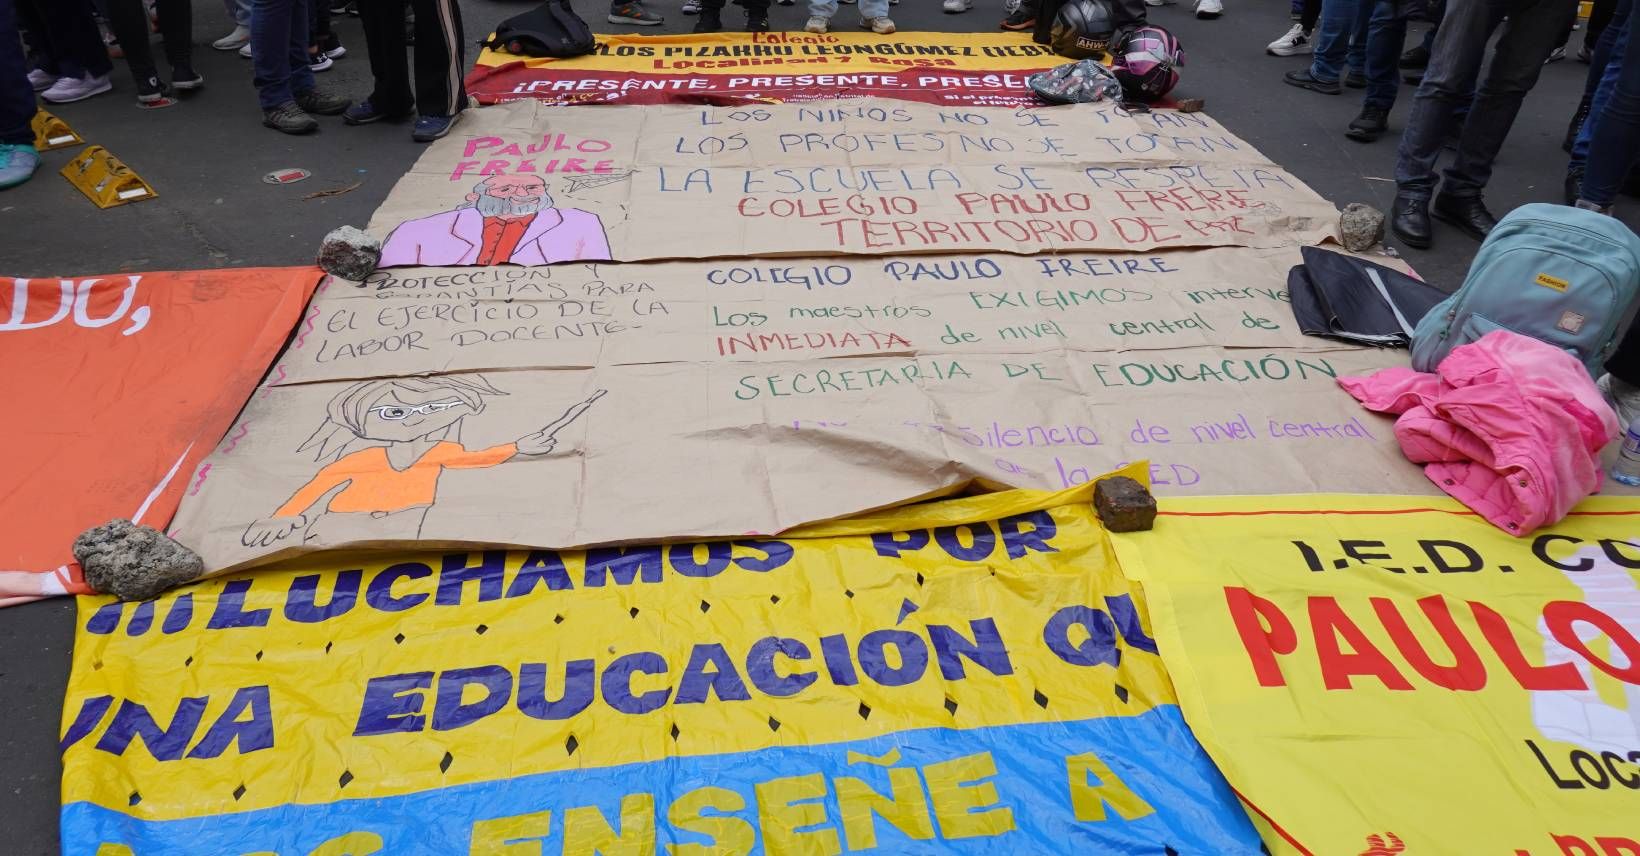 Colegio
LOS PIZARRO LEONGÓMEZ (IED)
Localidad 7 Bosa
¡PRESENTE, PRESENTE, PRESEN
PAULO
FREIRE
LOS NIÑOS NO SE TOCAN
LOS PROFES NO SE TOCAN
LA ESCUELA SE RESPETA
COLEGIO PAULO FREIRE
TERRITORIO DE PAZ
PROTECCIÓN Y
GARANTÍAS PARA
EL EJERCICIO DE LA
LABOR DOCENTE-
COLEGIO PAULO FREIRE
Los maestros EXIGIMOS interve
INMEDIATA de nivel central de
SECRETARIA DE EDUCACIÓN
silencio de nivel central
de la SED
DO,
¡¡¡LUCHAMOS POR
UNA EDUCACIÓN QU
ENSEÑE A
I.E.D. CO
PAULO
Loca
FASHION
AHW